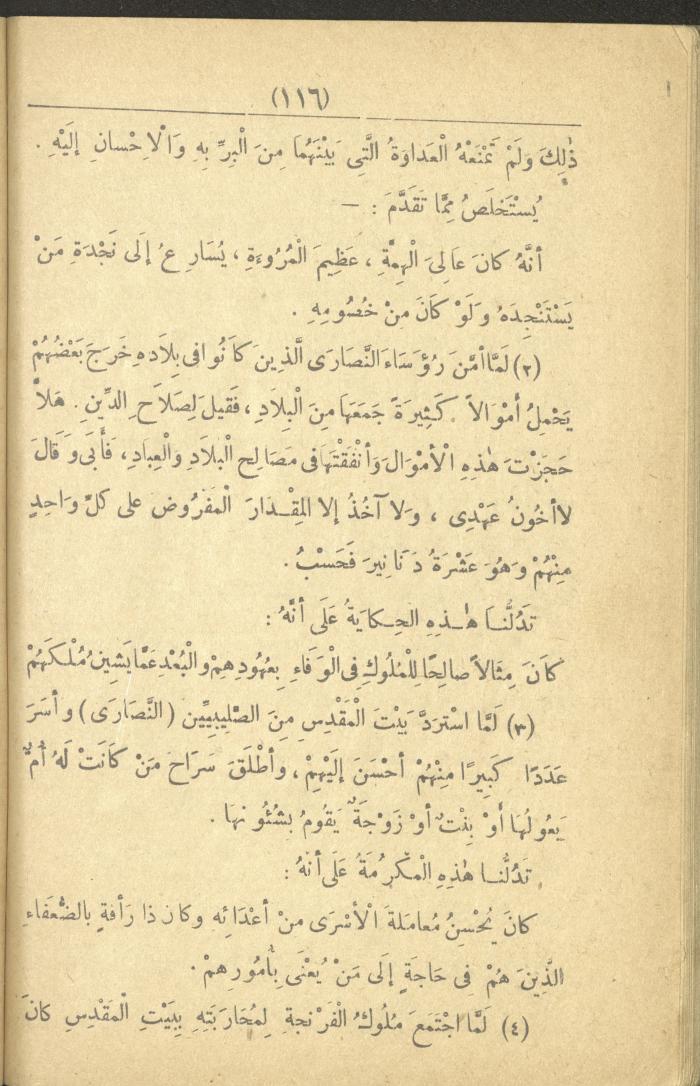 (١١٦)
ذٰلِكَ وَلَمْ تَمْنَعْهُ الْعَدَاوَةُ الَّتِى بَيْنَهُمَا مِنَ الْبِرِّ بِهِ وَالْاِحْسانِ إِلَيْهِ .
يُسْتَخْلَصُ مِمَّا تَقَدَّمَ : —
أَنَّهُ كانَ عَالِىَ الْهِمَّةِ ، عَظِيمَ الْمُرُوءَةِ ، يُسَارِعُ إِلَى نَجْدَةِ مَنْ
يَسْتَنْجِدَهُ وَلَوْ كَانَ مِنْ خُصُومِهِ .
(٢) لَمَّا أَمَّنَ رُؤَسَاءَ النَّصَارَى الَّذِينَ كَانُوا فى بِلَادِهِ خَرَجَ بَعْضُهُمْ
يَحْمِلُ أَمْوَالاً كَثِيرَةً جَمَعَهَا مِنَ الْبِلَادِ ، فَقِيلَ لِصَلَاحِ الدِّينِ . هَلاَّ
حَجَزْتَ هٰذِهِ الْأَمْوَالَ وَأَنْفَقْتَهَا فى مَصَالِحِ الْبلَادِ والْعِبادِ ، فَأَبَى وَقَالَ
لا أَخُونُ عَهْدِى ، وَلَا آخُذُ إِلا المِقْدَارَ الْمَفْرُوضَ على كلِّ وَاحِدٍ
مِنْهُمْ وَهُوَ عَشْرَةُ دَنَانِيرَ فَحَسْبُ .
تَدُلُّنَا هٰذِهِ الحِكايَةُ عَلَى أَنَّهُ :
كانَ مِثَالاً صالِحًا لِلْمُلُوكِ فِى الْوَفَاءِ بِعُهُودِهِمْ والْبُعْدِ عَمَّا يَشِينُ مُلْكَهُمْ
(٣) لَمَّا اسْتَرَدَّ بَيْتَ الْمَقْدِسِ مِنَ الصَّلِيبِيِّين (النَّصَارَى) وأَسَرَ
عَدَدًا كَبِيرًا مِنْهُمْ أَحْسَنَ إِلَيْهِمْ ، وَأَطْلَقَ سَرَاحَ مَنْ كَانَتْ لَهُ أُمٌّ
يَعُولُهَا أَوْ بِنْتٌ أَوْ زَوْجَةٌ يَقُومُ بشُئُونِهَا .
تَدُلُّنا هٰذِهِ الْمَكْرُمَةُ عَلَى أَنَّهُ :
كانَ يُحْسِنُ مُعامَلَةَ الْأَسْرَى مِنْ أَعْدَائِه وكان ذا رَأْفَةٍ بالضُّعَفَاءِ
الَّذِينَ هُمْ فِى حَاجَةٍ إِلَى مَنْ يُعْنَى بِأُمُورِهِمْ .
(٤) لَمَّا اجْتَمَعَ مُلُوكُ الْفَرَنْجةِ لِمُحَارَبَتِهِ بِبَيْتِ الْمَقْدِسِ كانَ